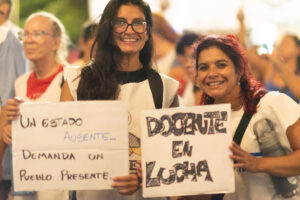 UN ESTADO
AUSENTE...
DEMANDA UN
PUEBLO PRESENTE.
DOCENTE
EN
LUCHA